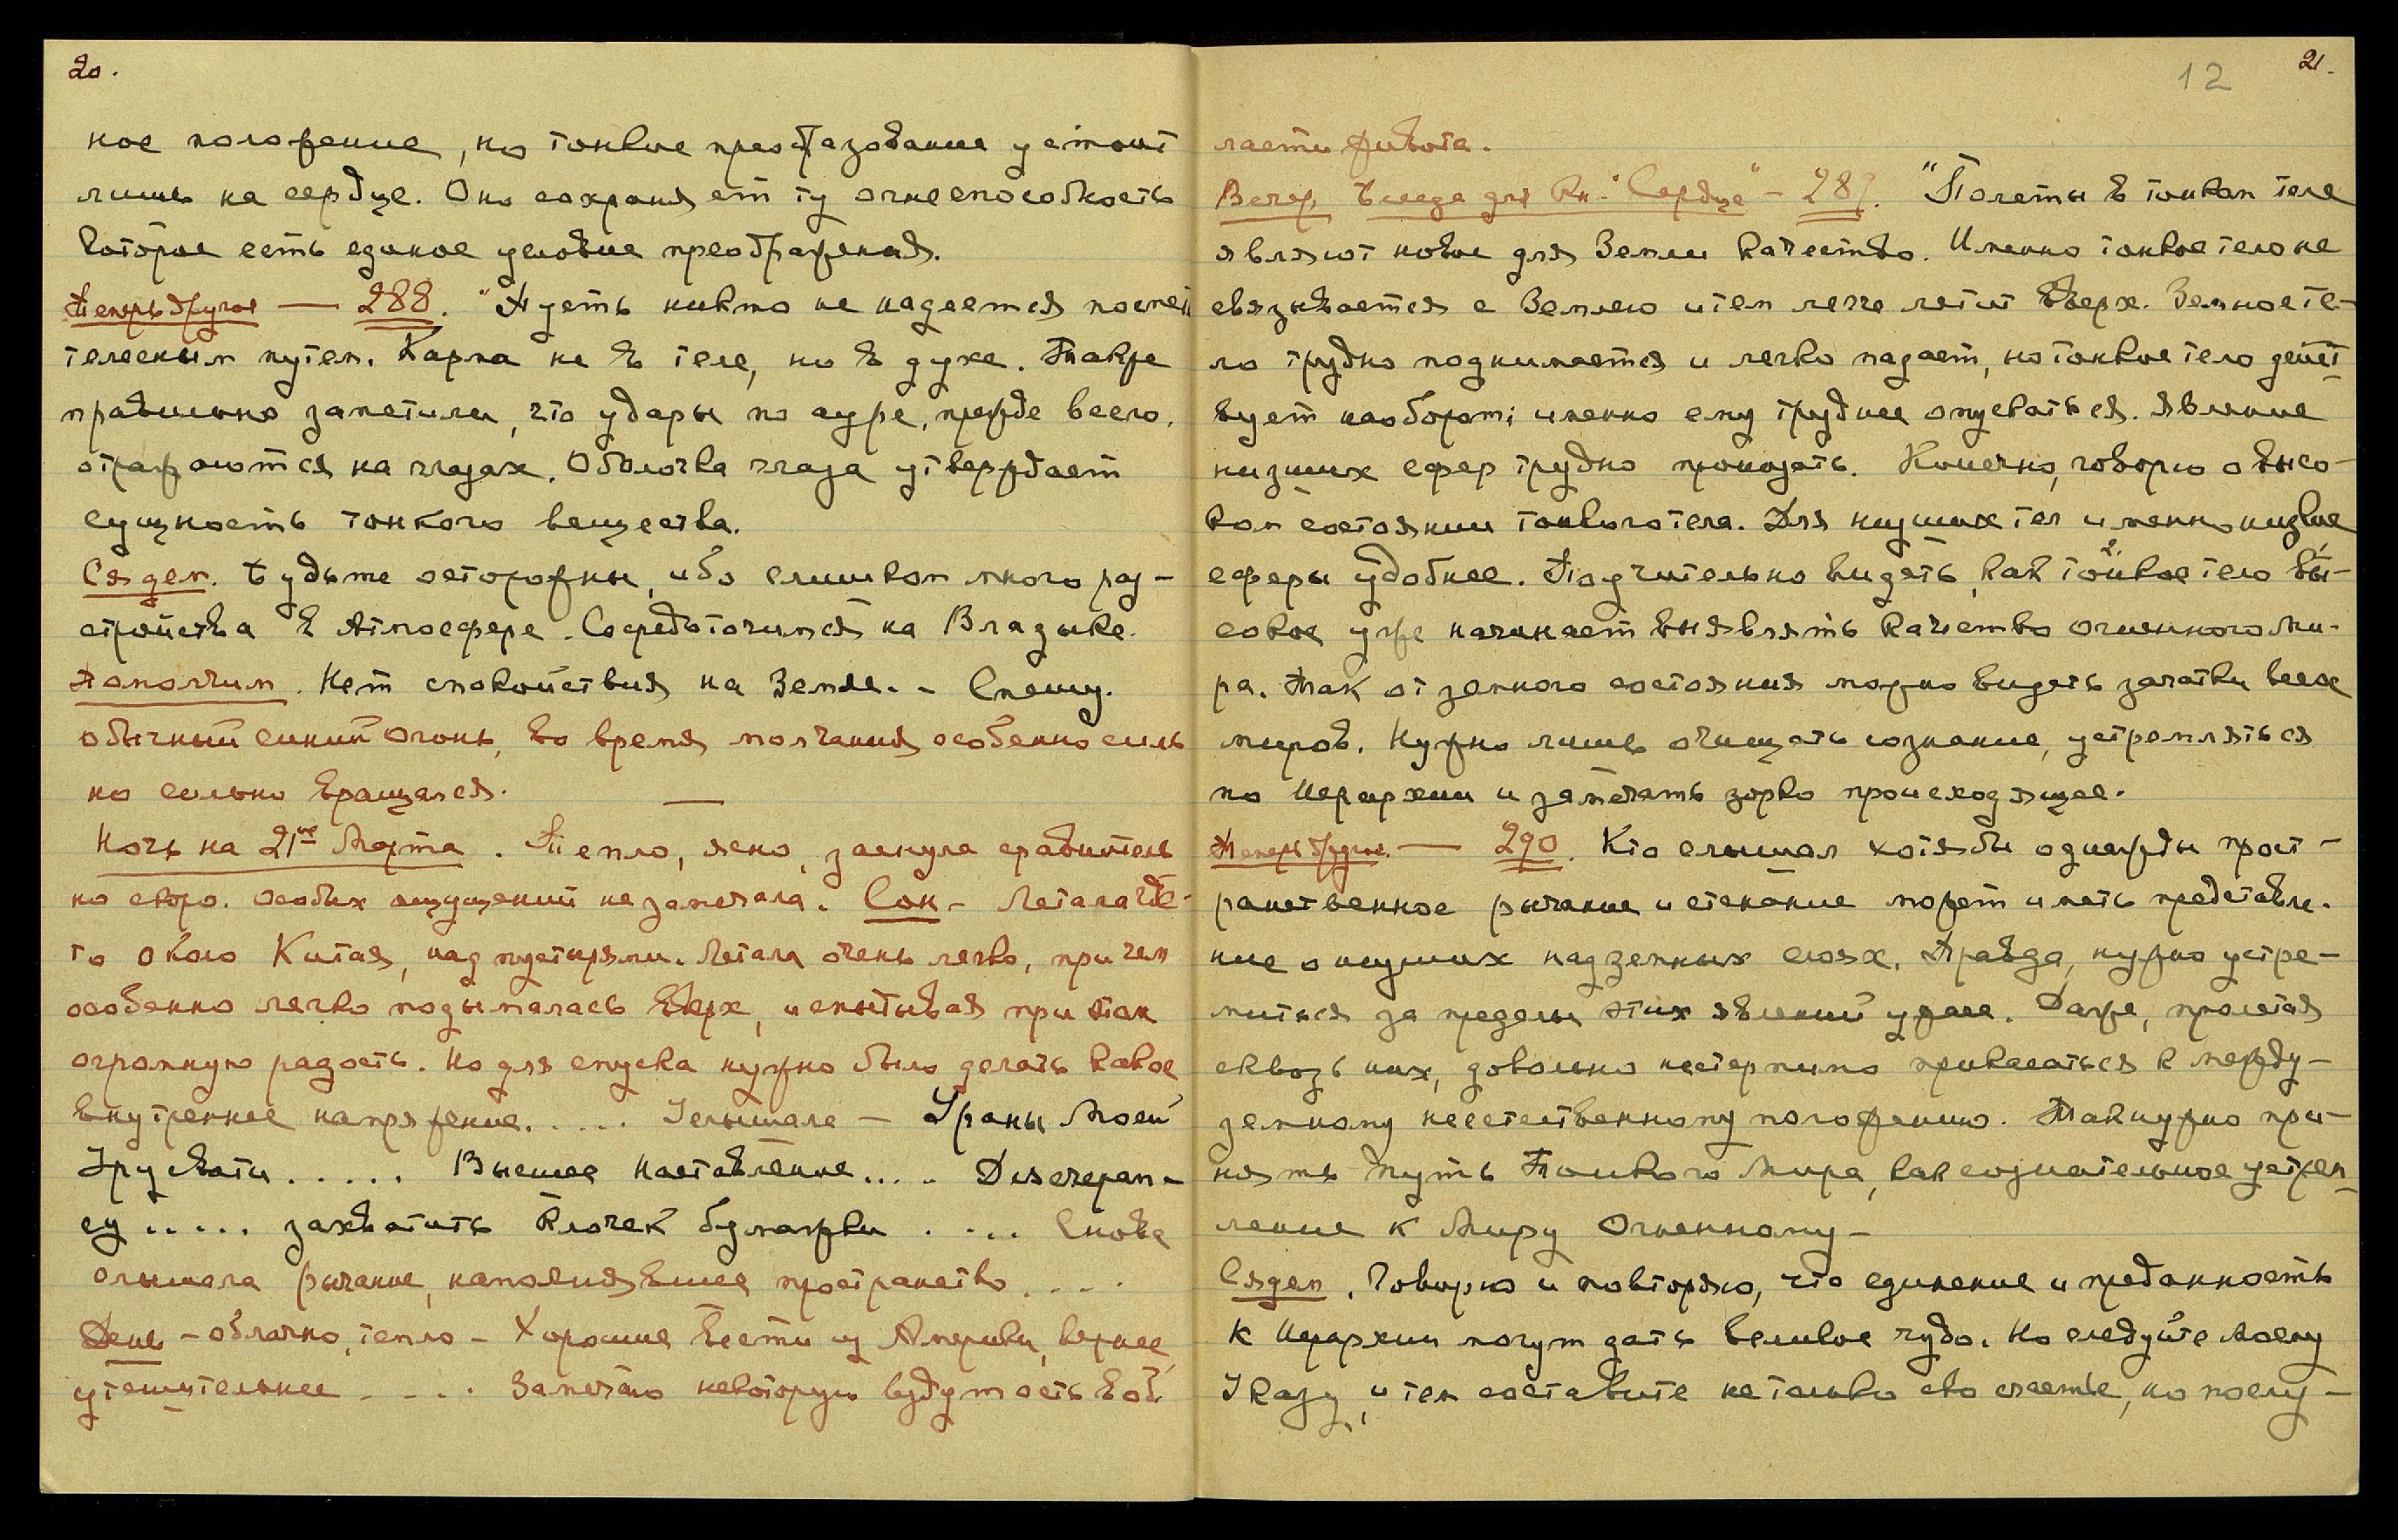 20.
ное положение, но тонкое преобразование устоит
лишь на сердце. Оно сохраняет ту огнеспособность
которое есть единое условие преображения.
Теперь другое — 288. "Пусть никто не надеется
телесным путем. Карма не в теле, но в духе. Также
правильно заметили, что удары по ауре, прежде всего,
отражаются на глазах. Оболочка глаза утверждает
сущность тонкого вещества.
Сядем. Будьте осторожны, ибо слишком много рас-
стройства в Атмосфере. Сосредоточимся на Владыке.
Помолчим. Нет спокойствия на Земле. - Спешу.
обычный синий огонь, во время молчания особенно силь
но сильно вращался.
Ночь на 21ое Марта. Тепло, ясно, заснула сравнитель
но скоро. Особых ощущений не замечала. Сон - Летала где-
то около Китая, над пустырями. Летала очень легко, при чем
особенно легко подымалась вверх, испытывая при этом
огромную радость. Но для спуска нужно было делать какое
внутреннее напряжение..... Услышала — Храны Моей
Урусвати..... Высшее наставление.....
су..... захватить клочек бумажки.... Снова
слышала рычание, наполнявшее пространство....
День - облачно, тепло - Хорошие вести из Америки, вернее
утешительнее.... Замечаю некоторую вздутость в об.
12
21.
ласти живота.
Вечер, Беседа для Кн. "Сердце" - 289. "Полеты в тонком теле
являют новое для Земли качество. Именно тонкое тело не
связывается с Землею и тем легче летит вверх. Земное те-
ло трудно поднимается и легко падает, но тонкое тело дейст
вует наоборот; именно ему труднее опускаться. Явление
низших сфер трудно пронизать. Конечно, говорю о высо-
ком состоянии тонкого тела. Для низших тел именно низкие
сферы удобнее. Поучительно видеть, как тонкое тело вы-
сокое уже начинает выявлять качество огненного Ми-
ра. Так от земного состояния можно видеть зачатки всех
миров. Нужно лишь очищать сознание, устремляться
по Иерархии и замечать зорко происходящее.
Теперь другое. — 290. Кто слышал хотя бы однажды прост-
ранственное рычание и стенание может иметь представле-
ние о низших надземных слоях. Правда, нужно устре-
миться за пределы этих явлений ужаса. Даже, пролетая
сквозь них, довольно нестерпимо прикасаться к между-
земному неестественному положению. Так нужно при-
нять путь Тонкого Мира, как сознательное устрем
ление к Миру Огненному -
Сядем. Говорю и повторяю, что единение и преданность
к Иерархии могут дать великое чудо. Но следуйте Моему
Указу, и тем составите не только сво счастье, но послу-